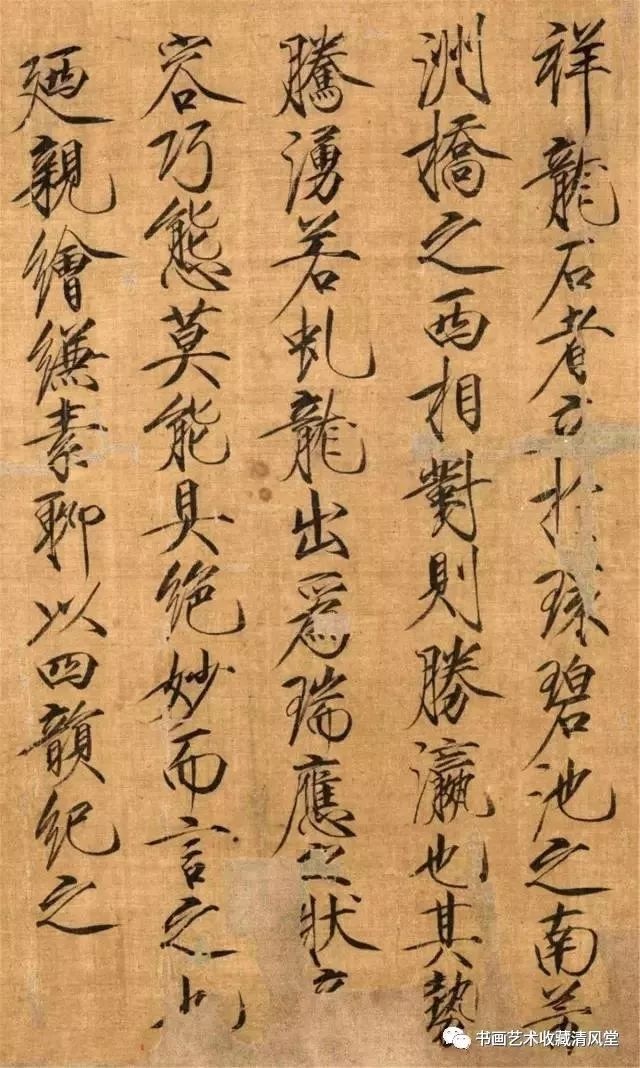 祥龍石者立於環碧池之南芳
洲橋之西相對則勝瀛也其勢
騰湧若虬龍出爲瑞應之狀奇
容巧態莫能具絕妙而言之也
廼親繪縑素聊以四韻紀之
书画艺术收藏清风堂